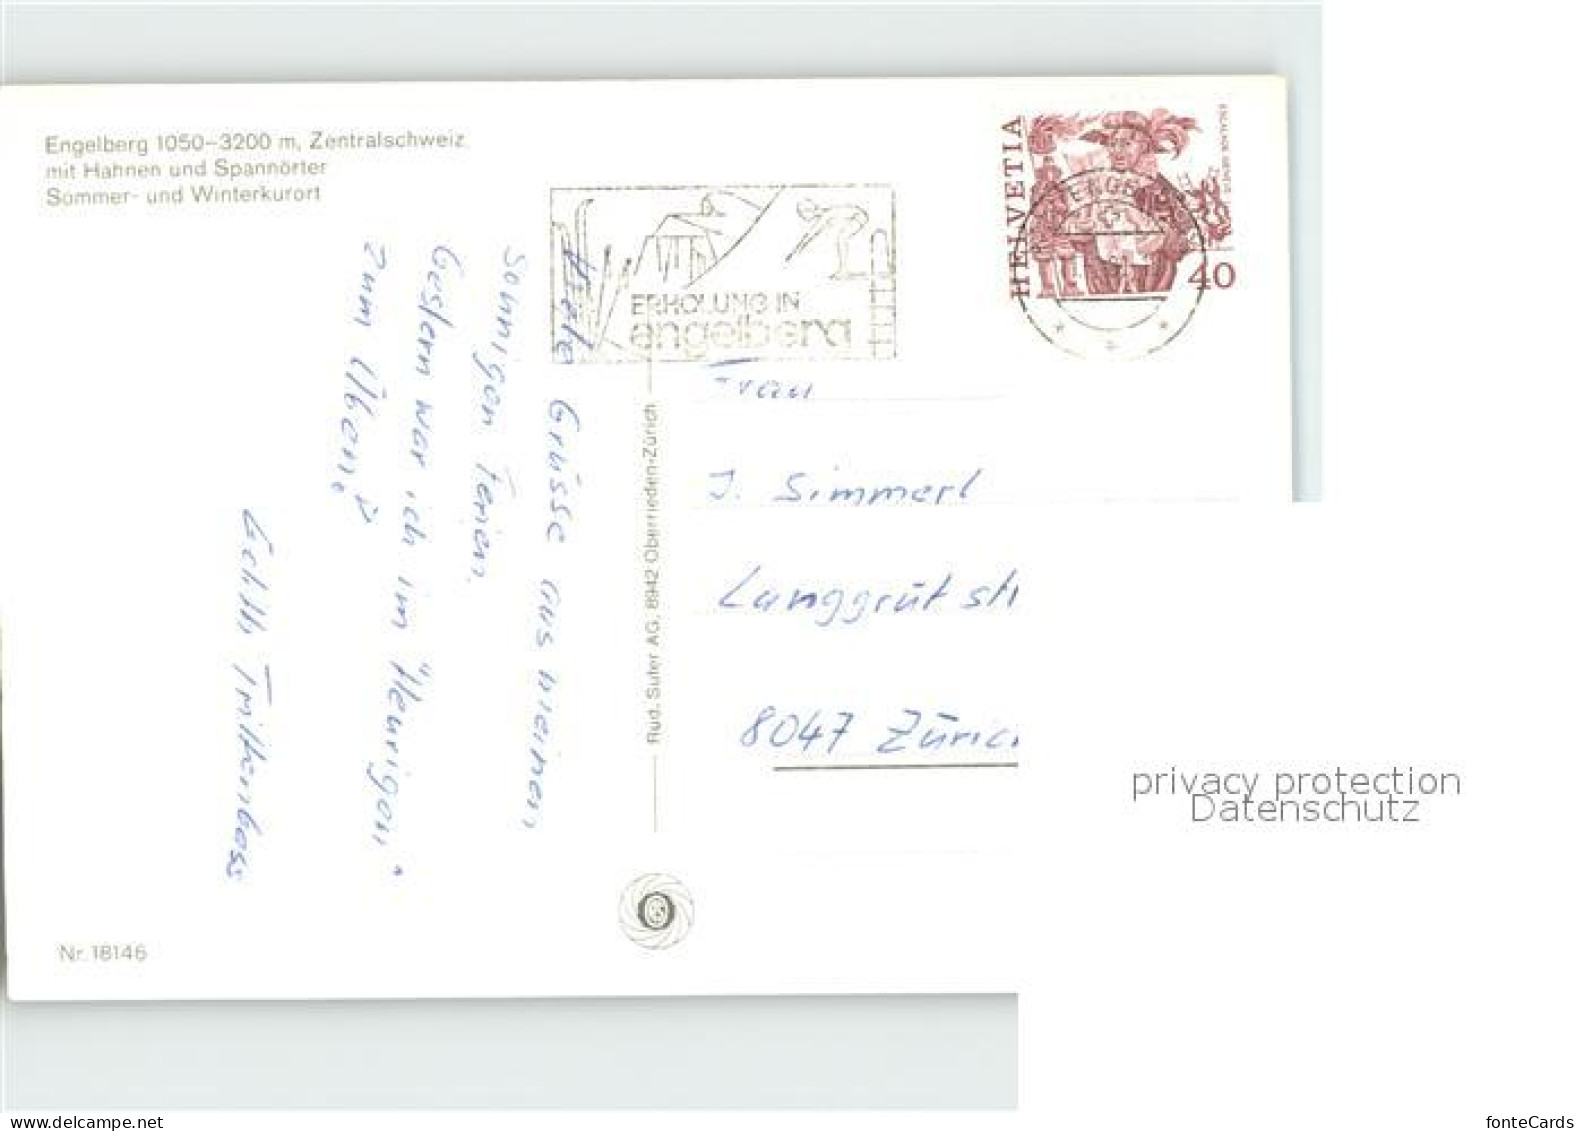 Engelberg 1050–3200 m, Zentralschweiz
mit Hahnen und Spannörter
Sommer- und Winterkurort
ERHOLUNG IN
engelberg
HELVETIA
ESCALADE GENÈVE
40
Viele Grüsse aus meinen
sonnigen Ferien.
Gestern war ich im "Heurigen"
zum Üben!
Frau
J. Simmerl
Langgrütstr
8047 Züric
Rud. Suter AG, 8942 Oberrieden-Zürich
Nr. 18146
privacy protection
Datenschutz
delcampe.net
fonteCards